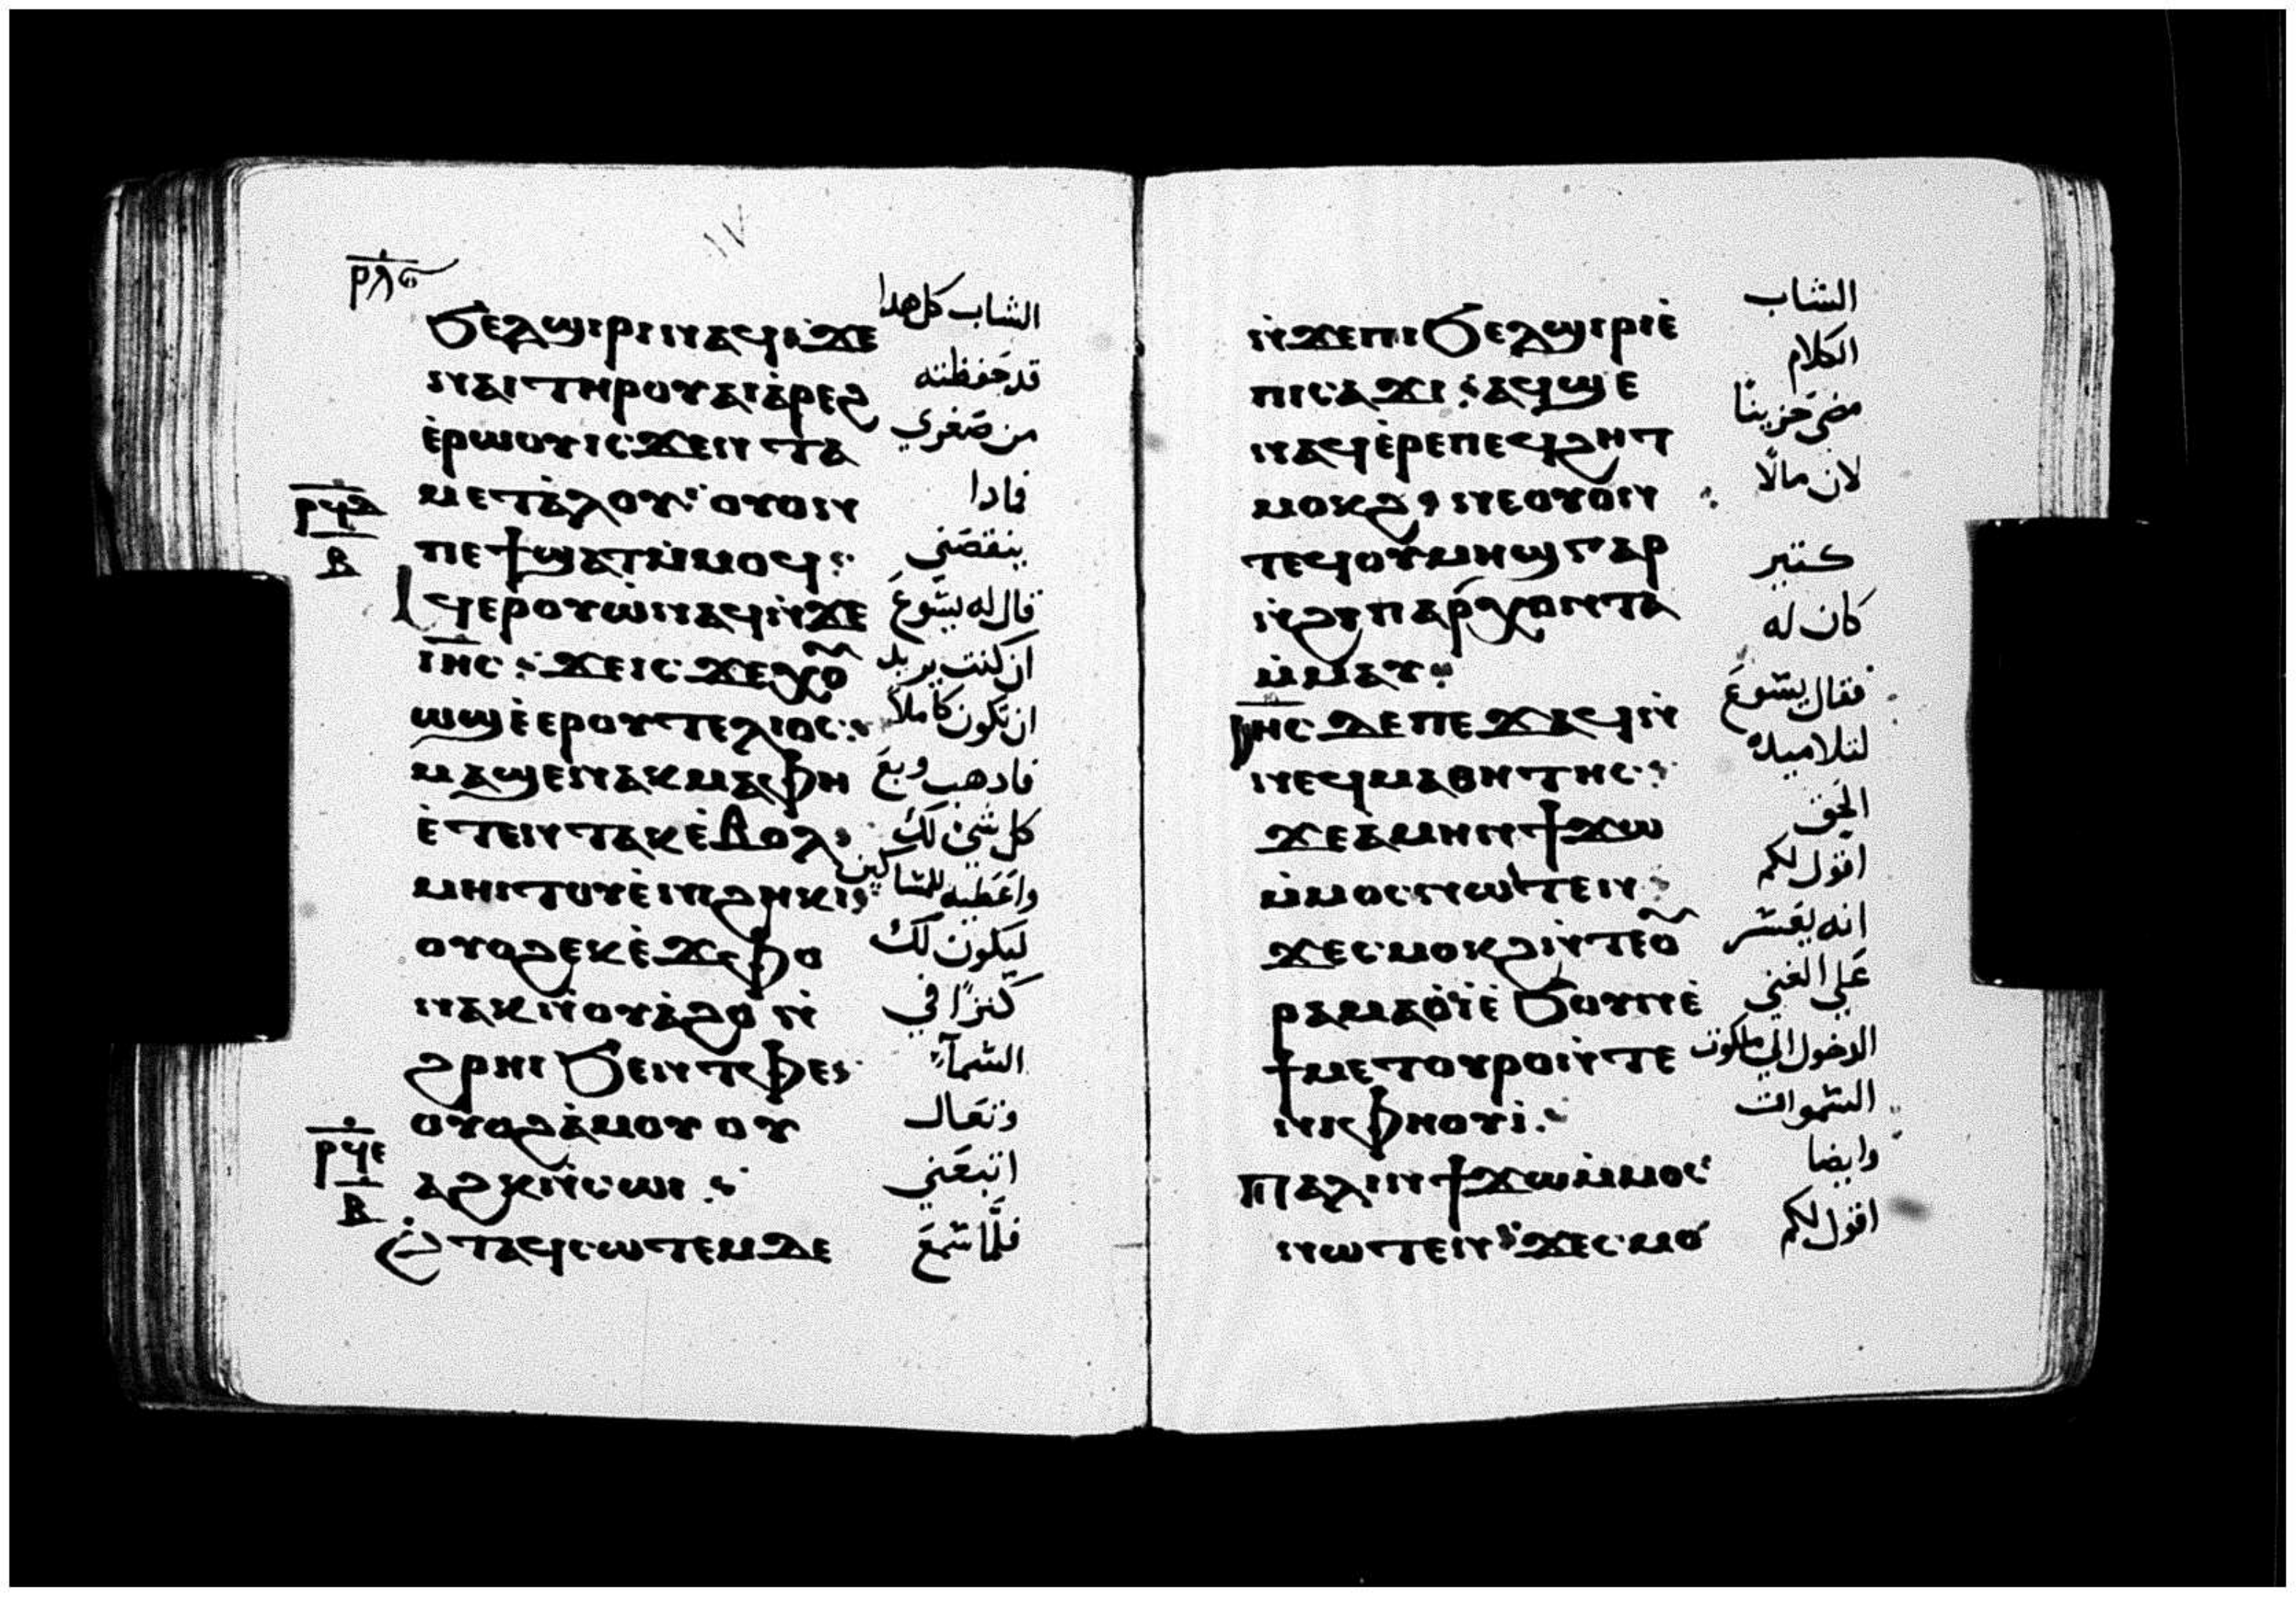 ⲣⲗⲋ
ϧⲉⲗϣⲓⲣⲓⲛⲁϥⲓϫⲉ الشاب كل هدا
ⲛⲁⲓⲧⲏⲣⲟⲩⲁⲓⲁ̀ⲣⲉϩ قد حفظته
ⲉ̀ⲣⲱⲟⲩⲓⲥϫⲉⲛ ⲧⲁ من صغري
ⲙⲉⲧⲁ̀ⲗⲟⲩ ⲟⲩⲟⲛ فادا
ⲡⲉϯϣⲁⲧⲙ̀ⲙⲟϥ ينقصني
ⲁϥⲉⲣⲟⲩⲱ̀ⲛⲁϥⲛ̀ϫⲉ قال له يسوع
ⲓⲏⲥ ϫⲉⲓⲥϫⲉⲭⲟ ان كنت يريد
ⲱϣⲉ̀ⲉⲣⲟⲩⲧⲉⲗⲓⲟⲥ ان تكون كاملا
ⲙⲁϣⲉⲛⲁⲕⲙⲁⲫⲏ فادهب وبع
ⲉ̀ⲧⲉⲛⲧⲁⲕⲉ̀ⲃⲟⲗ كل شئ لك
ⲙⲏⲓⲧⲟⲩⲉ̀ⲛⲓϩⲏⲕⲓ واعطيه للمساكين
ⲟⲩⲟϩⲉⲕⲉ̀ϫⲫⲟ ليكون لك
ⲛⲁⲕⲛ̀ⲟⲩⲁ̀ϩⲟ ⲛ̀ كنزا في
ϩⲣⲏⲓ ϧⲉⲛⲧⲫⲉ السمآء
ⲟⲩⲟϩⲁ̀ⲙⲟⲩ ⲟⲩ وتعال
ⲁϩⲕⲛ̀ⲥⲱⲓ اتبعني
ⲉⲧⲁϥⲥⲱⲧⲉⲙⲇⲉ فلما سمع
ⲣϥⲇ
ⲃ
ⲣϥⲉ
ⲃ
ⲛ̀ϫⲉⲡⲓϧⲉⲗϣⲓⲣⲓⲉ̀ الشاب
ⲡⲓⲥⲁϫⲓ ⲁϥϣⲉ الكلام
ⲛⲁϥⲉ̀ⲣⲉⲡⲉϥϩⲏⲧ مضى حزينا
ⲙⲟⲕϩ ⲛⲉⲟⲩⲟⲛ لان مالا
ⲧⲉϥⲟⲩⲙⲏϣⲅⲁⲣ كتير
ⲛ̀ϩⲩⲡⲁⲣⲭⲟⲛⲧⲁ كان له
ⲙ̀ⲙⲁⲩ
ⲓⲏⲥ ⲇⲉⲡⲉϫⲁϥⲛ̀ فقال يسوع
ⲛⲉϥⲙⲁⲑⲏⲧⲏⲥ لتلاميده
ϫⲉⲁ̀ⲙⲏⲛϯϫⲱ الحق
ⲙ̀ⲙⲟⲥⲛⲱⲧⲉⲛ اقول لكم
ϫⲉⲥⲙⲟⲕϩⲛ̀ⲧⲉⲟ انه يعسر
ⲣⲁⲙⲁⲟ̀ⲓ̀ⲉ̀ϧⲟⲩⲛⲉ̀ على الغني
ϯⲙⲉⲧⲟⲩⲣⲟⲛ̀ⲧⲉ الدخول الي ملكوت
ⲛⲓⲫⲏⲟⲩⲓ̀ السموات
ⲡⲁⲗⲓⲛϯϫⲱⲙ̀ⲙⲟⲥ وايضا
ⲛⲱⲧⲉⲛ ϫⲉⲥⲙⲟ اقول لكم